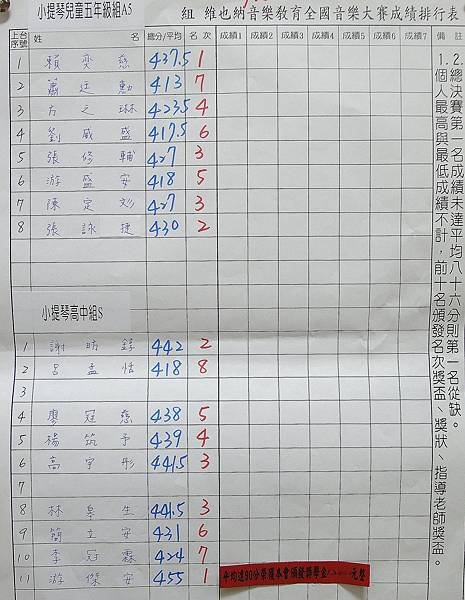 小提琴兒童五年級組A5
組 維也納音樂敎育全國音樂大賽成績排行表
上台序號 姓 名 總分/平均 名次 成績1 成績2 成績3 成績4 成績5 成績6 成績7 備註
1 賴奕慈 437.5 1
2 蕭廷勳 413 7
3 方之琳 423.5 4
4 劉威盛 417.5 6
5 張修輔 427 3
6 游盛安 418 5
7 陳定 427 3
8 張詠捷 430 2
小提琴高中組S
1 謝 錚 442 2
2 呂孟恬 418 8
3
4 廖冠慈 438 5
5 楊筑予 439 4
6 高宇彤 441.5 3
7
8 林皇生 441.5 3
9 簡立安 431 6
10 李冠霖 424 7
11 游傑安 455 1
平均達90分榮獲本會頒發獎學金 元整
1.個人最高與最低成績不計，前十名頒發名次獎盃、獎狀、指導老師獎盃。
2.總決賽第一名成績未達平均八十六分則第一名從缺。